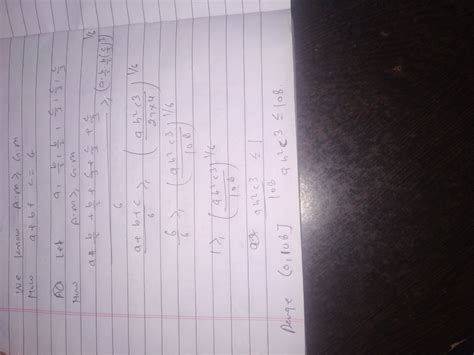 We know A.M ≥ G.M
Now a + b + c = 6
Let a, b/2, b/2, c/3, c/3, c/3
Now A.M ≥ G.M
(a + b/2 + b/2 + c/3 + c/3 + c/3)/6 ≥ (a · b/2 · b/2 (c/3)^3)^1/6
(a + b + c)/6 ≥ (ab²c3/27×4)^1/6
6/6 ≥ (ab²c3/108)^1/6
1 ≥ (ab²c3/108)^1/6
ab²c3/108 ≤ 1
ab²c3 ≤ 108
Range (0, 108]